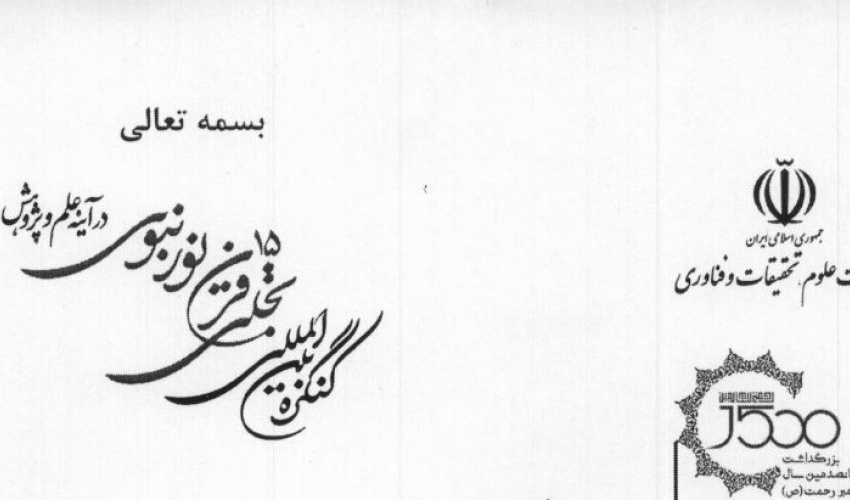 بسمه تعالی
کنگره بین المللی
تجلی ۱۵ قرن نور نبوی
در آینه علم و پژوهش
جمهوری اسلامی ایران
علوم، تحقیقات و فناوری
۱۵۰۰
بزرگداشت
سال
رحمت(ص)